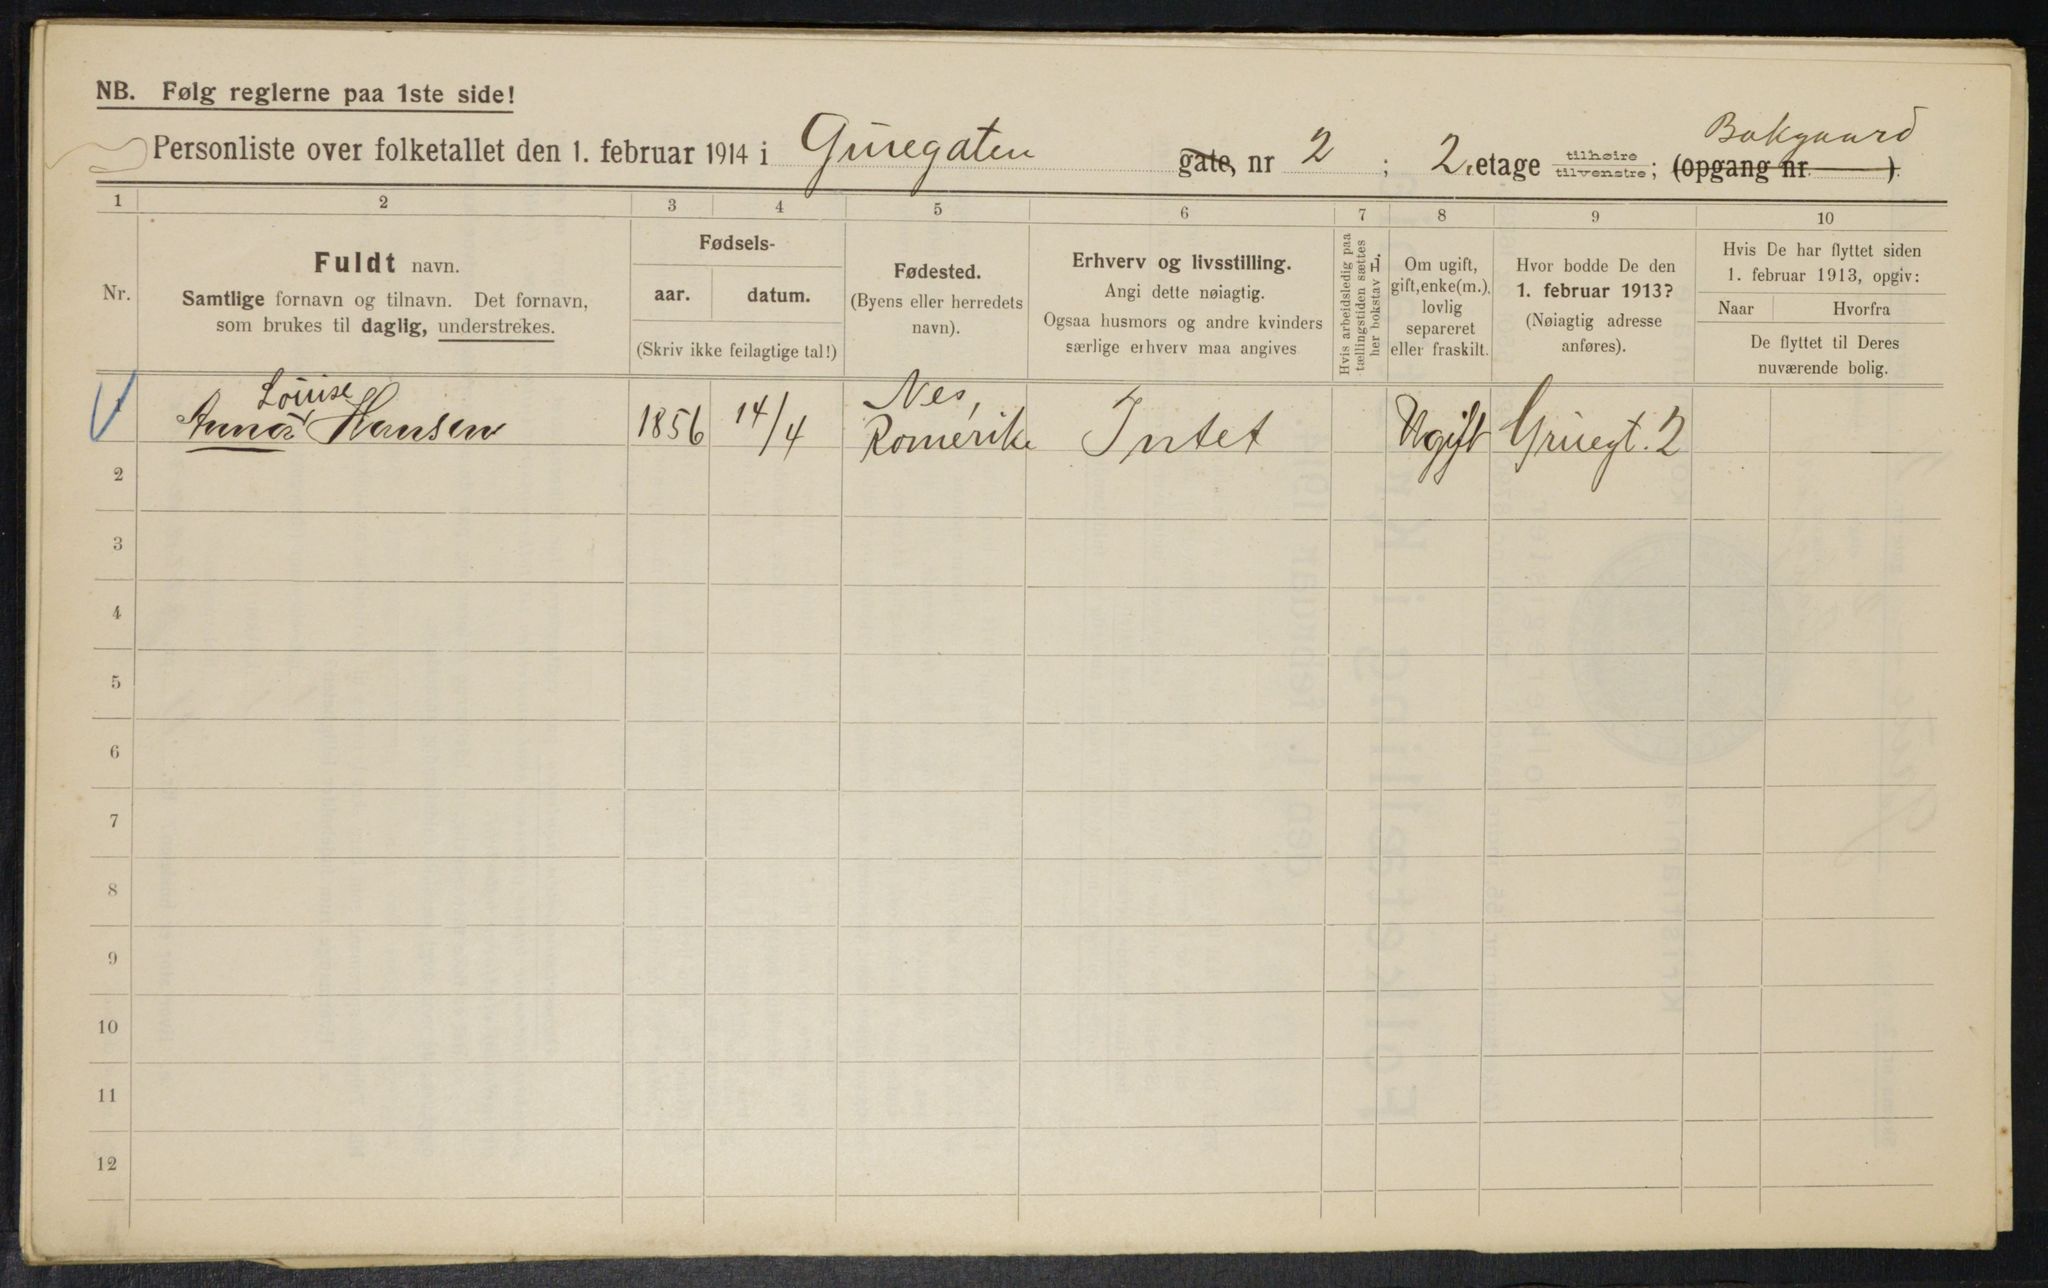 NB. Følg reglerne paa 1ste side!
Bakgaard
Personliste over folketallet den 1. februar 1914 i Gruegaten gate, nr 2 ; 2. etage tilhøire/tilvenstre; (opgang nr. ).
1 2 3 4 5 6 7 8 9 10
Nr.
Fuldt navn.
Samtlige fornavn og tilnavn. Det fornavn,
som brukes til daglig, understrekes.
Fødsels-
aar. datum.
(Skriv ikke feilagtige tal!)
Fødested.
(Byens eller herredets
navn).
Erhverv og livsstilling.
Angi dette nøiagtig.
Ogsaa husmors og andre kvinders
særlige erhverv maa angives
Hvis arbeidsledig paa
tællingstiden sættes
her bokstav L.
Om ugift,
gift, enke(m.),
lovlig
separeret
eller fraskilt.
Hvor bodde De den
1. februar 1913?
(Nøiagtig adresse
anføres).
Hvis De har flyttet siden
1. februar 1913, opgiv:
Naar Hvorfra
De flyttet til Deres
nuværende bolig.
Louise Nes,
1 Anna Hansen 1856 14/4 Romerike Intet Ugift Gruegt. 2
2
3
4
5
6
7
8
9
10
11
12